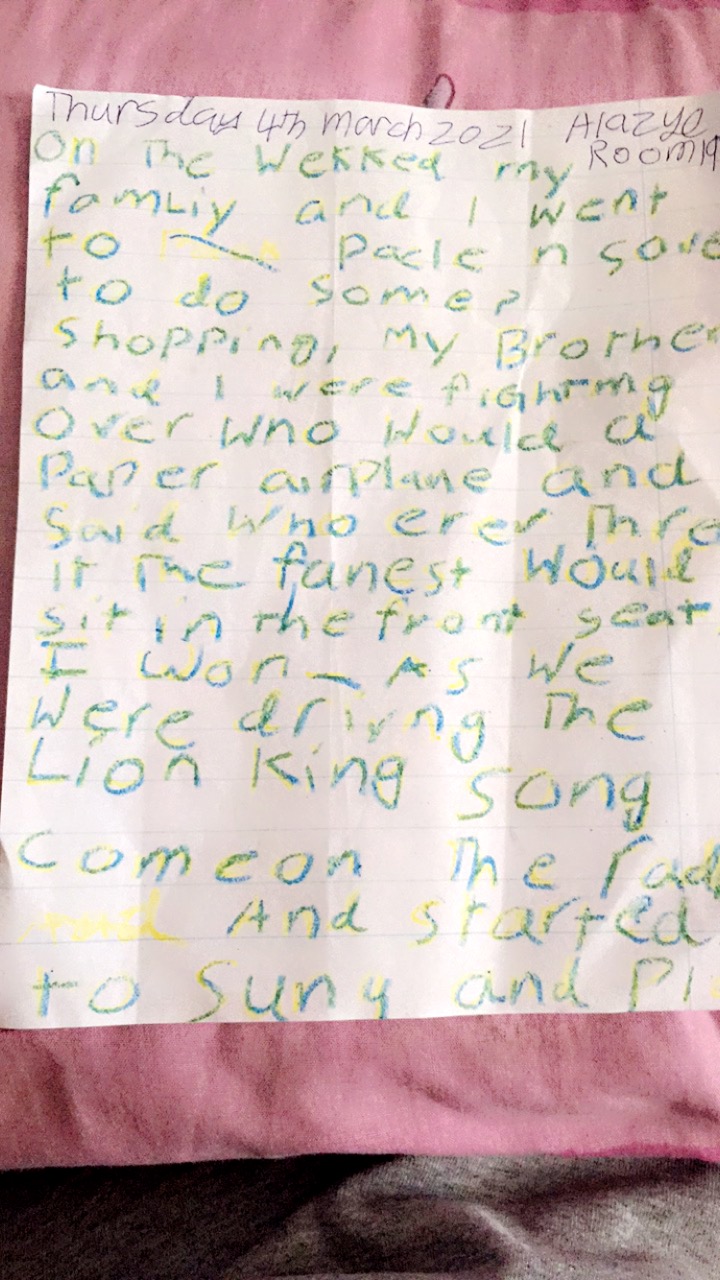 Thursday 4th march 2021 Alazye
Room 19
On The Wekked my
famliy and I went
to Pacle n save
to do some
shopping, My Brother
and I were fighting
Over who would a
Paper airplane and
Said Who erer Thre
it The fanest would
sit in the front seat.
I won_ As we
Were drivng The
Lion King song
Comeon The rad
And started
to Suny and Pl